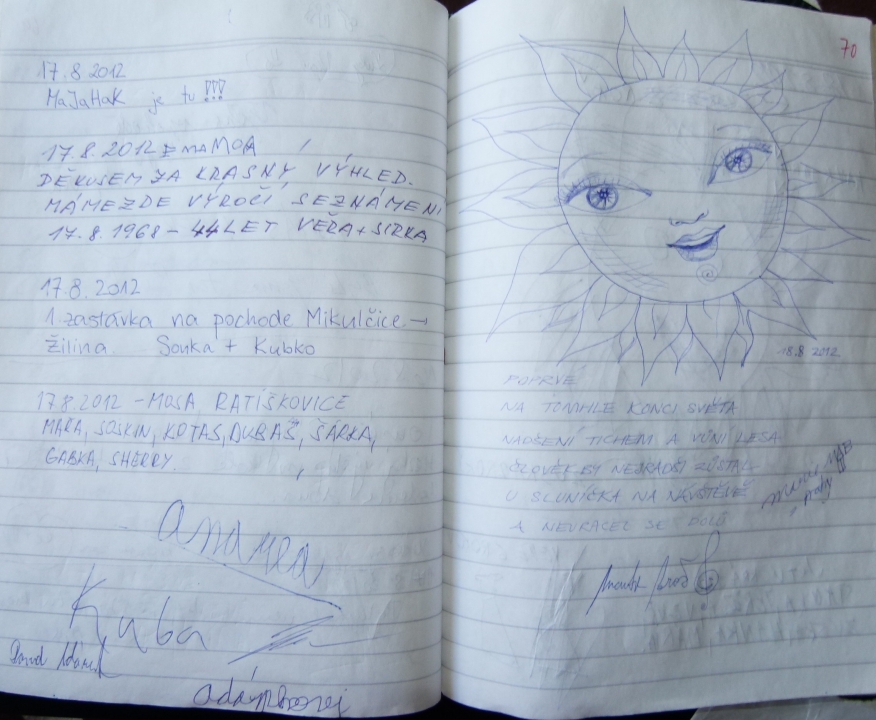 17.8 2012
MaJaHaK je tu !!!
17.8.2012 MOA
DĚKUJEM ZA KRASNÝ VÝHLED.
MÁME ZDE VÝROČÍ SEZNÁMENI
17.8.1968 - 44 LET VĚRA + JIRKA
17.8.2012
1. zastávka na pochode Mikulčice →
Žilina. Soňka + Kubko
17.8.2012 - MOSA RATÍŠKOVICE
MAŘA, SOSKIN, KOTAS, DUBAŠ, ŠÁRKA,
GABKA, SHERRY.
Kuba
70
18.8 2012
POPRVÉ
NA TOMHLE KONCI SVĚTA
NADŠENÍ TICHEM A VŮNÍ LESA
ČLOVĚK BY NEJRADŠI ZŮSTAL
U SLUNÍČKA NA NÁVŠTĚVĚ
A NEVRACEL SE DOLŮ